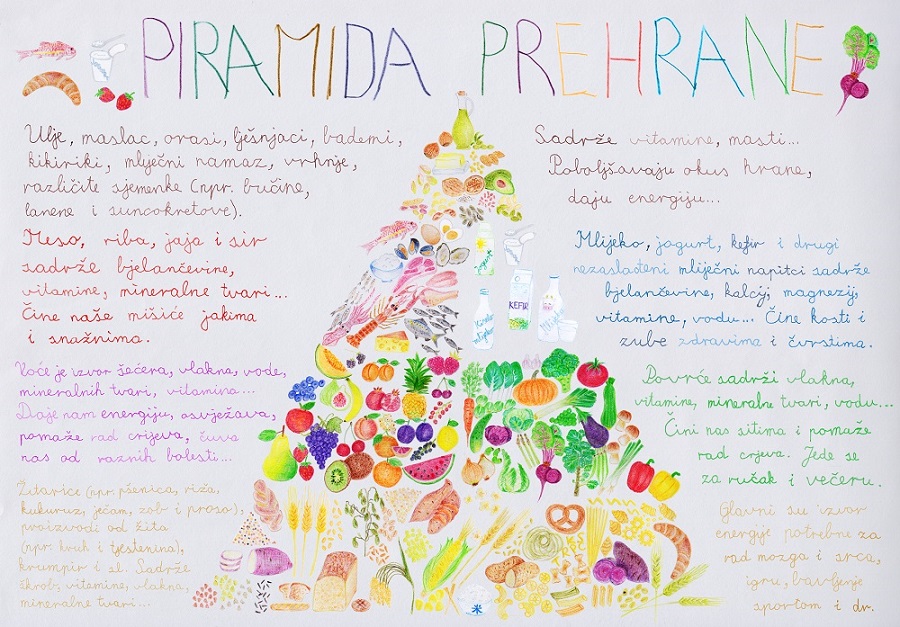 PIRAMIDA PREHRANE
Ulje, maslac, orasi, lješnjaci, bademi,
kikiriki, mlječni namaz, vrhnje,
različite sjemenke (npr. bučine,
lanene i suncokretove).
Sadrže vitamine, masti...
Poboljšavaju okus hrane,
daju energiju...
Meso, riba, jaja i sir
sadrže bjelančevine,
vitamine, mineralne tvari...
Čine naše mišiće jakima
i snažnima.
Mlijeko, jogurt, kefir i drugi
nezaslađeni mliječni napitci sadrže
bjelančevine, kalcij, magnezij,
vitamine, vodu... Čine kosti i
zube zdravima i čvrstima.
KEFIR
Voće je izvor šećera, vlakna, vode,
mineralnih tvari, vitamina...
Daje nam energiju, osvježava,
pomaže rad crijeva, čuva
nas od raznih bolesti...
Povrće sadrži vlakna,
vitamine, mineralne tvari, vodu...
Čini nas sitima i pomaže
rad crjeva. Jede se
za ručak i večeru.
Žitarice (npr. pšenica, riža,
kukuruz, ječam, zob i proso),
proizvodi od žita
(npr. kruh i tjestenina),
krumpir i sl. Sadrže
škrob, vitamine, vlakna,
mineralne tvari...
Glavni su izvor
energije potrebne za
rad mozga i srca,
igru, bavljenje
sportom i dr.
米